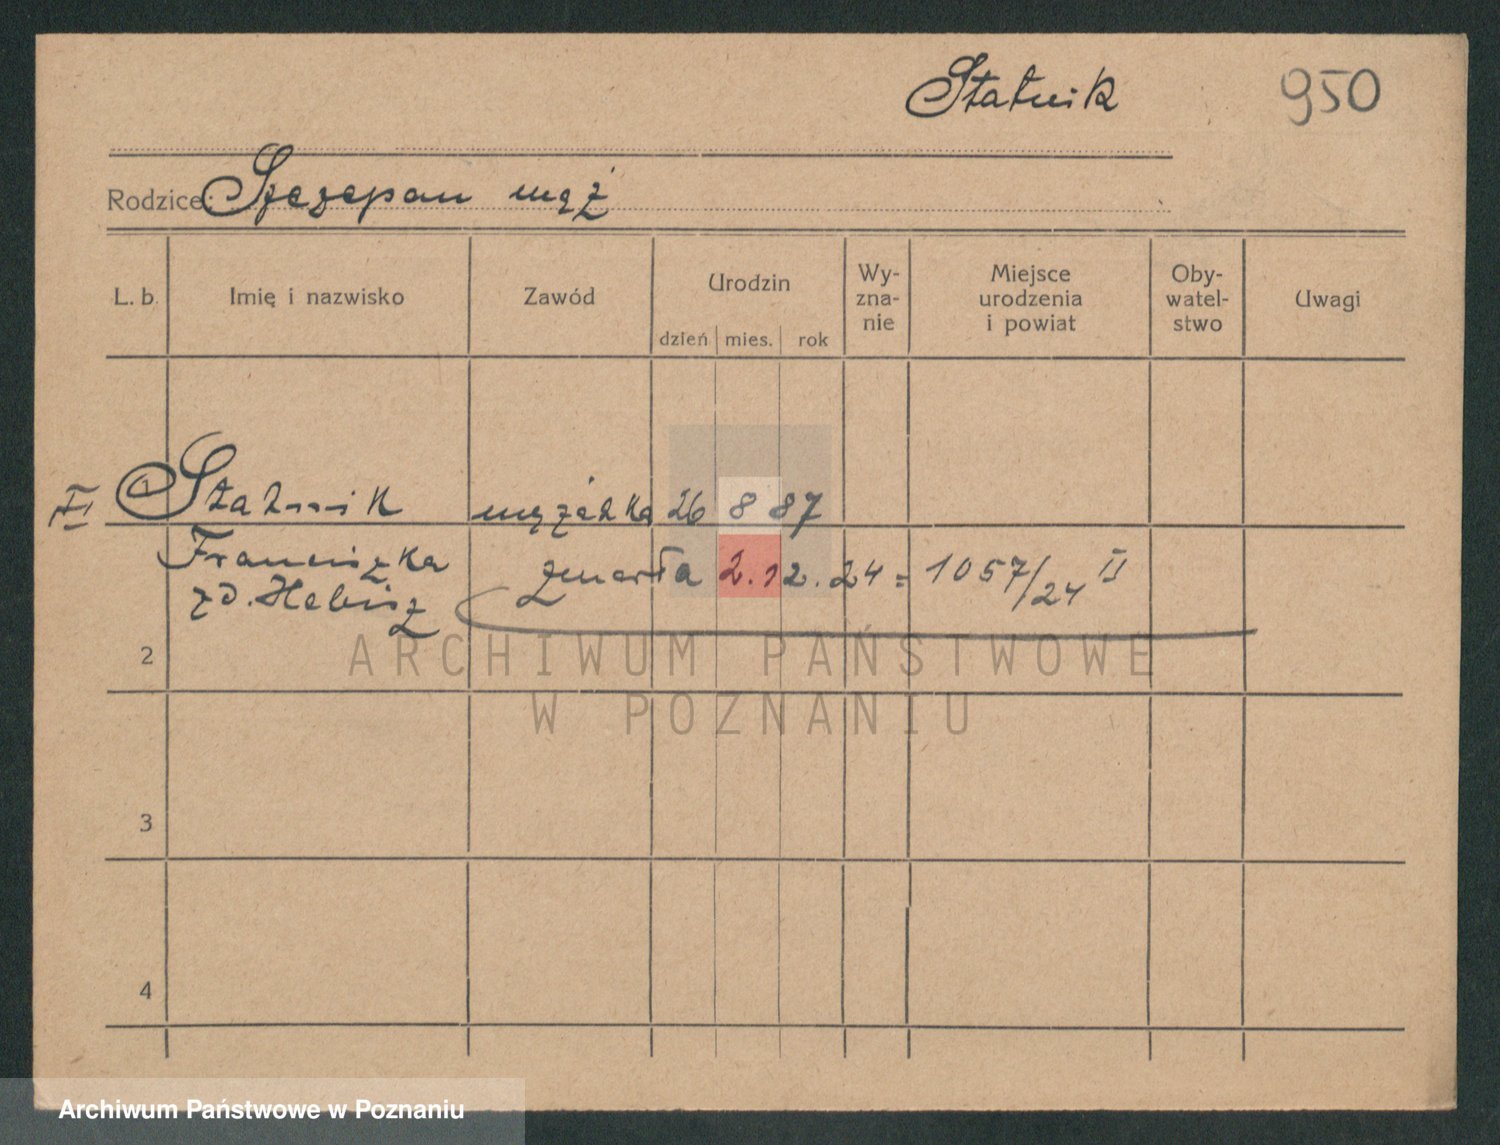 Statnik 950
Rodzice: Szczepan mąż
L. b. Imię i nazwisko Zawód Urodzin Wy-zna-nie Miejsce urodzenia i powiat Oby-watel-stwo Uwagi
dzień mies. rok
II 1 Statnik mężatka 26 8 87
Franciszka zmarła 2.12.24 = 1057/24 II
zd. Hebisz
2
ARCHIWUM PAŃSTWOWE
W POZNANIU
3
4
Archiwum Państwowe w Poznaniu